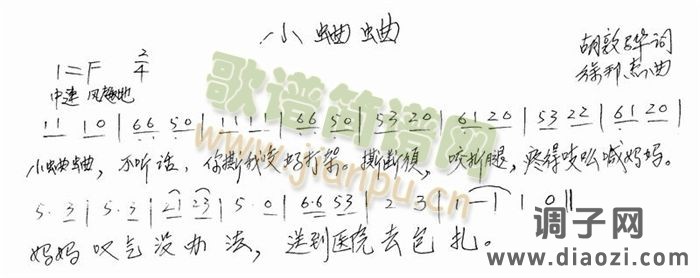 小蛐蛐
胡敦骅词
1=F 2/4
徐邦杰曲
中速 风趣地
11 10 | 66 50 | 11 11 | 66 50 | 53 20 | 61 20 | 53 22 | 61 20 |
小蛐蛐，不听话，你撕我咬好打架。撕断须，咬折腿，疼得吱吆喊妈妈。
5. 3 | 5. 3 | 21 23 | 5. 0 | 6.6 53 | 2 3 | 1 — | 1 0 ||
妈妈叹气没办法，送到医院去包扎。
歌谱简谱网
www.jianpu.cn
调子网
www.diaozi.com